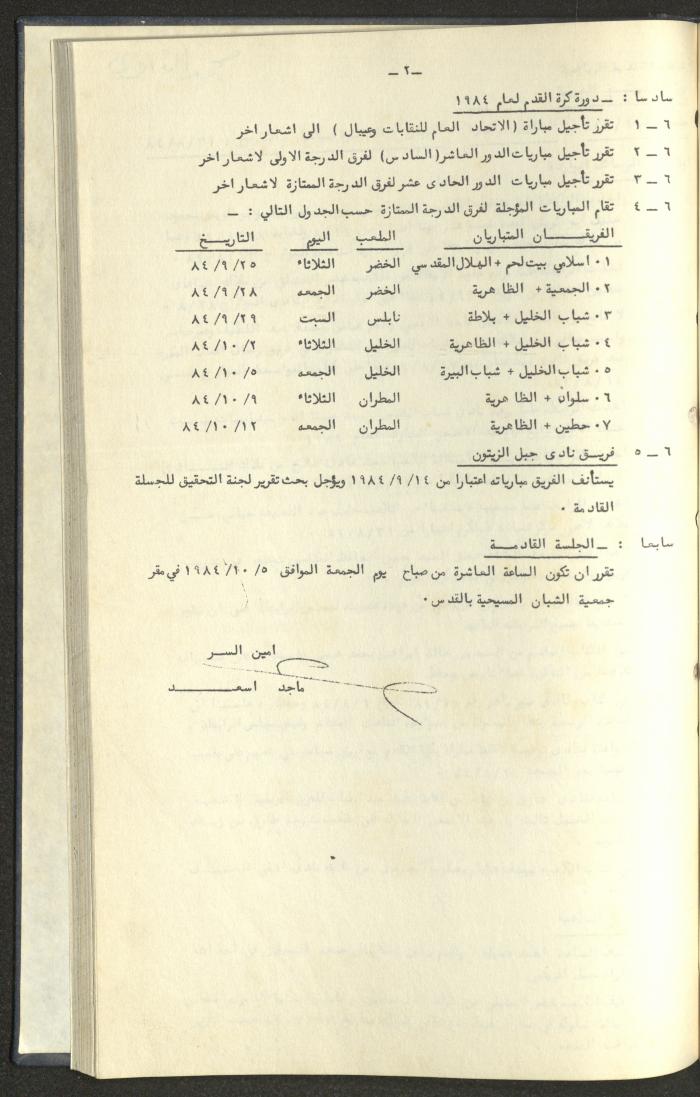 ـ ٢ ـ
سادسا : ـ دورة كرة القدم لعام ١٩٨٤
٦ ـ ١ تقرر تأجيل مباراة (الاتحاد العام للنقابات وعيبال ) الى اشعار اخر
٦ ـ ٢ تقرر تأجيل مباريات الدور العاشر (السادس) لفرق الدرجة الاولى لاشعار اخر
٦ ـ ٣ تقرر تأجيل مباريات الدور الحادى عشر لفرق الدرجة الممتازة لاشعار اخر
٦ ـ ٤ تقام المباريات المؤجلة لفرق الدرجة الممتازة حسب الجدول التالي : ـ
الفريقـــان المتباريان الملعب اليوم التاريــخ
١٠ اسلامي بيت لحم + الهلال المقدسي الخضر الثلاثاء ٢٥/ ٩/ ٨٤
٢٠ الجمعية + الظاهرية الخضر الجمعه ٢٨/ ٩/ ٨٤
٣٠ شباب الخليل + بلاطة نابلس السبت ٢٩/ ٩/ ٨٤
٤٠ شباب الخليل + الظاهرية الخليل الثلاثاء ٢/ ١٠/ ٨٤
٥٠ شباب الخليل + شباب البيرة الخليل الجمعه ٥/ ١٠/ ٨٤
٦٠ سلوان + الظاهرية المطران الثلاثاء ٩/ ١٠/ ٨٤
٧٠ حطين + الظاهرية المطران الجمعه ١٢/ ١٠/ ٨٤
٦ ـ ٥ فريـق نادى جبل الزيتون
يستأنف الفريق مبارياته اعتبارا من ١٤/ ٩/ ١٩٨٤ ويؤجل بحث تقرير لجنة التحقيق للجسلة
القادمة ٠
سابعا : ـ الجلسة القادمــة
تقرر ان تكون الساعة العاشرة من صباح يوم الجمعة الموافق ٥/ ١٠/ ١٩٨٤ في مقر
جمعية الشبان المسيحية بالقدس ٠
امين السـر
ماجد اسعــــد